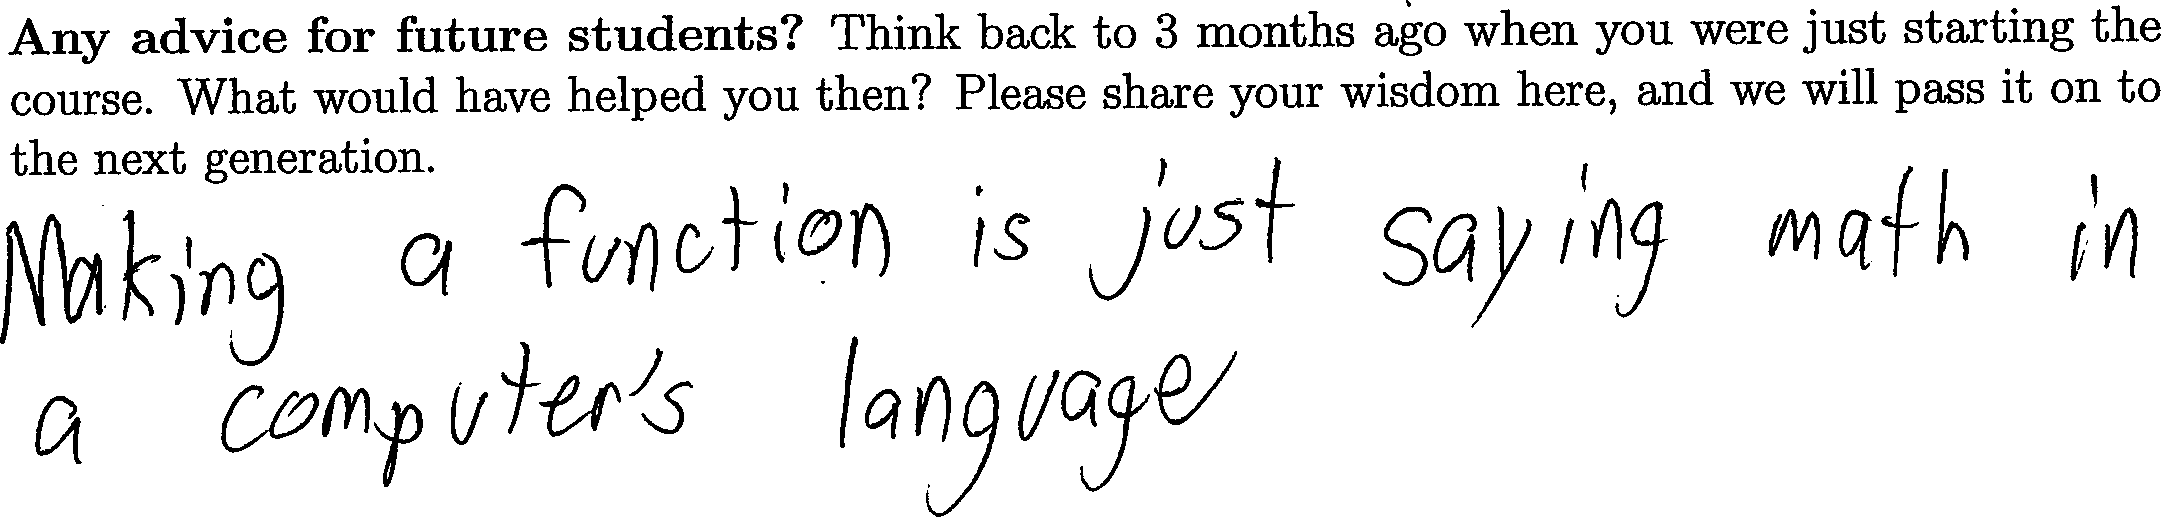 Any advice for future students? Think back to 3 months ago when you were just starting the
course. What would have helped you then? Please share your wisdom here, and we will pass it on to
the next generation.
Making a function is just saying math in
a computer's language